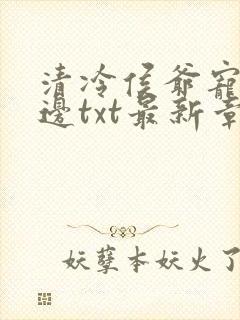 清冷侯爷宠
邊txt最新章
妖孽本妖火了